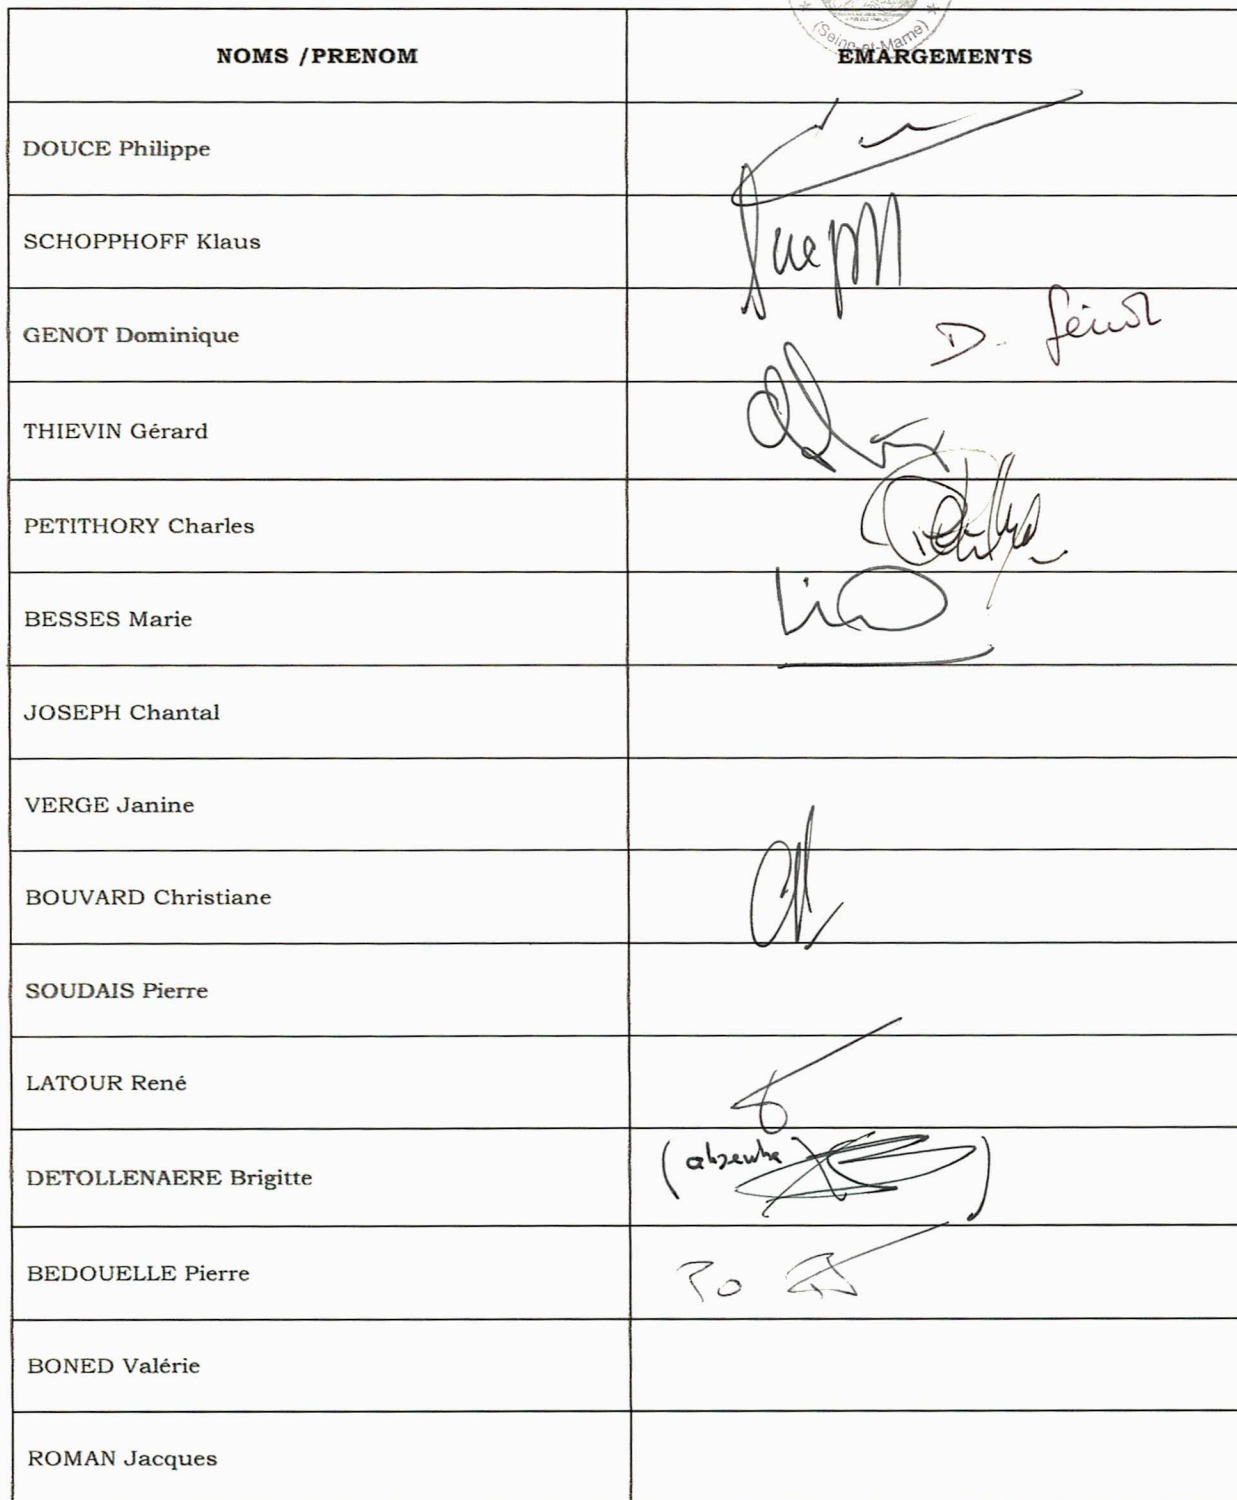 (Seine-et-Marne)
NOMS /PRENOM
EMARGEMENTS
DOUCE Philippe
SCHOPPHOFF Klaus
GENOT Dominique
D. Génot
THIEVIN Gérard
PETITHORY Charles
BESSES Marie
JOSEPH Chantal
VERGE Janine
BOUVARD Christiane
SOUDAIS Pierre
LATOUR René
DETOLLENAERE Brigitte
(absente )
BEDOUELLE Pierre
Po
BONED Valérie
ROMAN Jacques